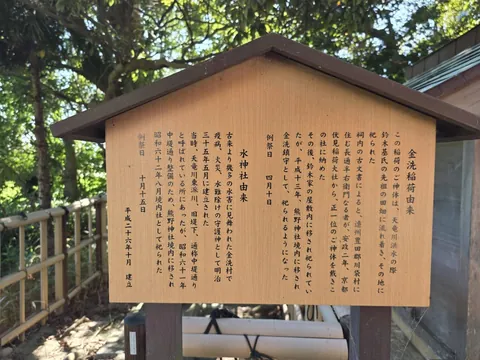 金洗稲荷由来
この稲荷のご神体は、天竜川洪水の際
鈴木茶氏の先祖の田畑に流れ着き、その地に
祀られた
祠内の古文書によると、遠州豊田郡川袋村に
住む長通半右衛門なる者が、安政二年、京都
伏見稲荷大社から、正一位のご神体を戴きこ
の社に納めた
その後、鈴木家の屋敷内に移され祀られてい
たが、平成十三年、熊野神社境内に移され
金洗鎮守として、祀られるようになった
例祭日 四月十日
水神社由来
古来より幾多の水害に見舞われた金洗村で
疫病、火災、水難除けの守護神として明治
三十五年五月に建立された
当時、天竜川東派川、旧堤下、通称中堤通り
と呼ばれている所にあったが、昭和六十一年
中堤通り整備のため、熊野神社境内に移され
昭和六十二年八月境内社として祀られた
例祭日 十月十五日
平成二十六年十月 建立